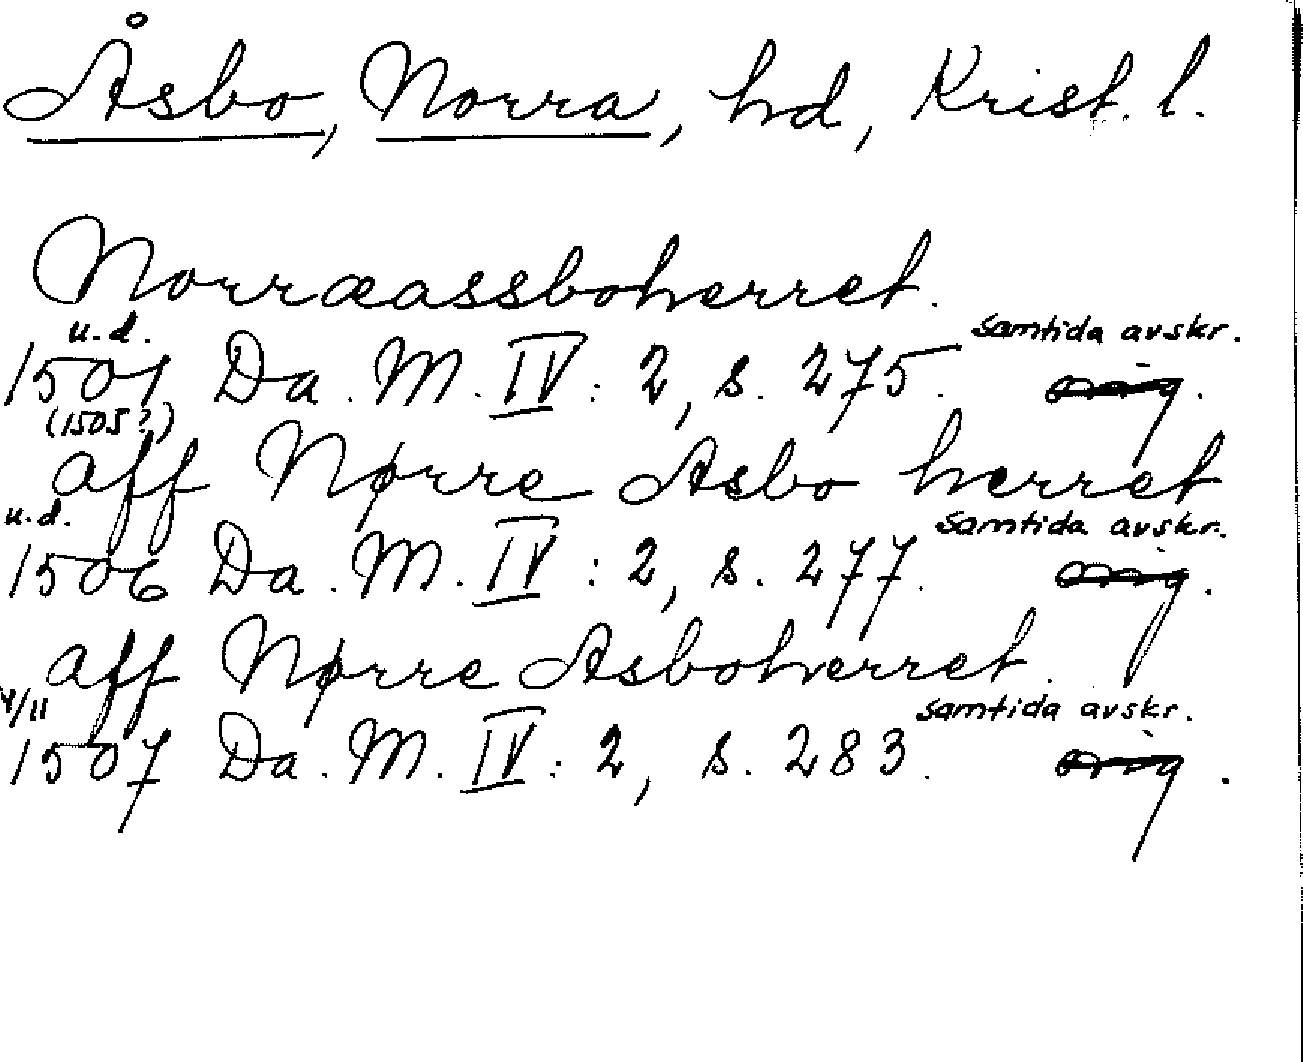 Åsbo, Norra, hd, Krist. l.
Norræassboherret.
u.d. samtida avskr.
1501 Da. M. IV: 2, s. 275. orig.
(1505?)
aff Nørre Asbo herret
u.d. samtida avskr.
1506 Da. M. IV: 2, s. 277. orig.
aff Nørre Asboherret.
/11 samtida avskr.
1507 Da. M. IV: 2, s. 283. orig.